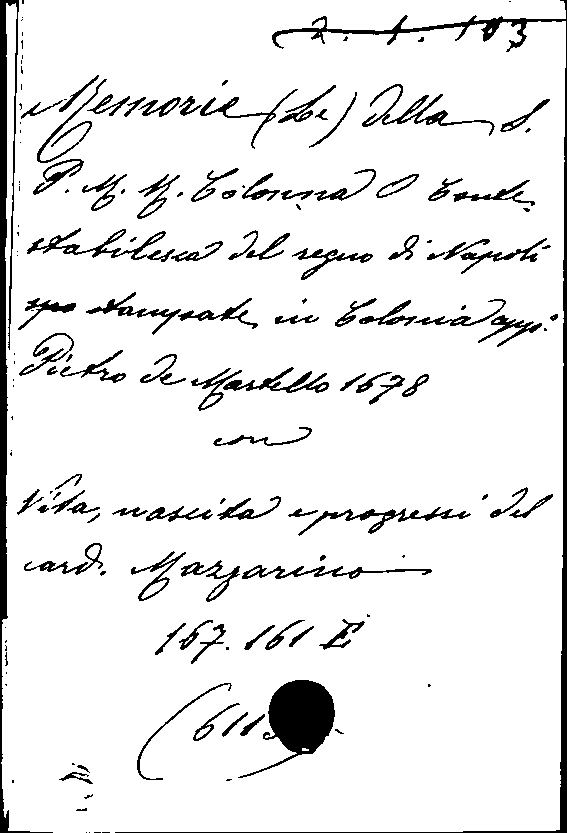 2. 1. 103
Memorie (Le) della S.
P. M. M. Colonna G Conte
stabilessa del regno di Napoli
stampate in Colonia app:
Pietro de Martello 1678
con
Vita, nascita e progressi del
card. Mazzarino
167. 161 E
(611